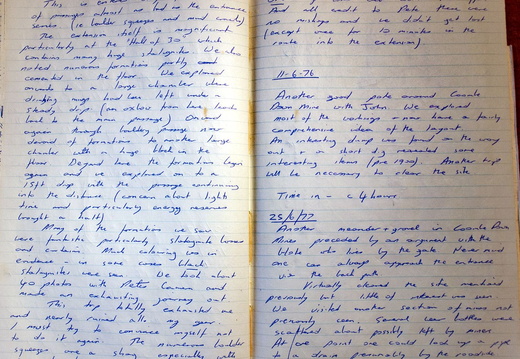 This is
of passage already, we had to the entrance
series (ie boulder squeeze and mind country)
The extension itself is magnificent
particularly at the "Hall of 30" which
contains many huge stalagmites. We also
noted numerous formations partly
cemented in the floor. We explored
onwards to a large chamber where
drinking mugs had been left under a
steady drip (an oxbow from here leads
back to the main passage) Onward
again through boulder passage now
devoid of formations to another large
chamber with a huge block on the
floor. Beyond here the formations began
again and we explored on to a
15ft drop with the passage continuing
into the distance (concern about lights
time and particularly energy reserves
brought a halt)
Many of the formations we saw
were fantastic particularly stalagmite bosses
and curtains. Much calcining was in
evidence in some cases black
stalagmites were seen. We took about
40 photos with Peter's camera and
made an exhausting journey out.
This trip totally exhausted me
and nearly ruined all my gear.
I must try to convince myself not
to do it again. The numerous boulder
squeezes are a strong especially with
And all credit to Pete there were
no mishaps and we didn't get lost
(except once for 10 minutes in the
route into the extension).
11-6-76
Another good poke around Coombe
Down Mine with John. We explored
most of the workings + now have a fairly
comprehensive idea of the layout
An interesting drop was found in the way
out + a short dig revealed some
interesting items (pre 1920). Another trip
will be necessary to clear the site
Time in - c 4 hours
25/6/77
Another meander + grovel in Coombe Down
Mines preceded by an argument with the
bloke who lives by the gate. Never mind
one can always approach the entrance
via the back path
Virtually cleared the site mentioned
previously but little of interest was seen.
We visited another section of mines not
previously seen. Several beer bottles were
scattered about possibly left by miners
At one point one could look up a pipe
to a drain presumably by the roadside